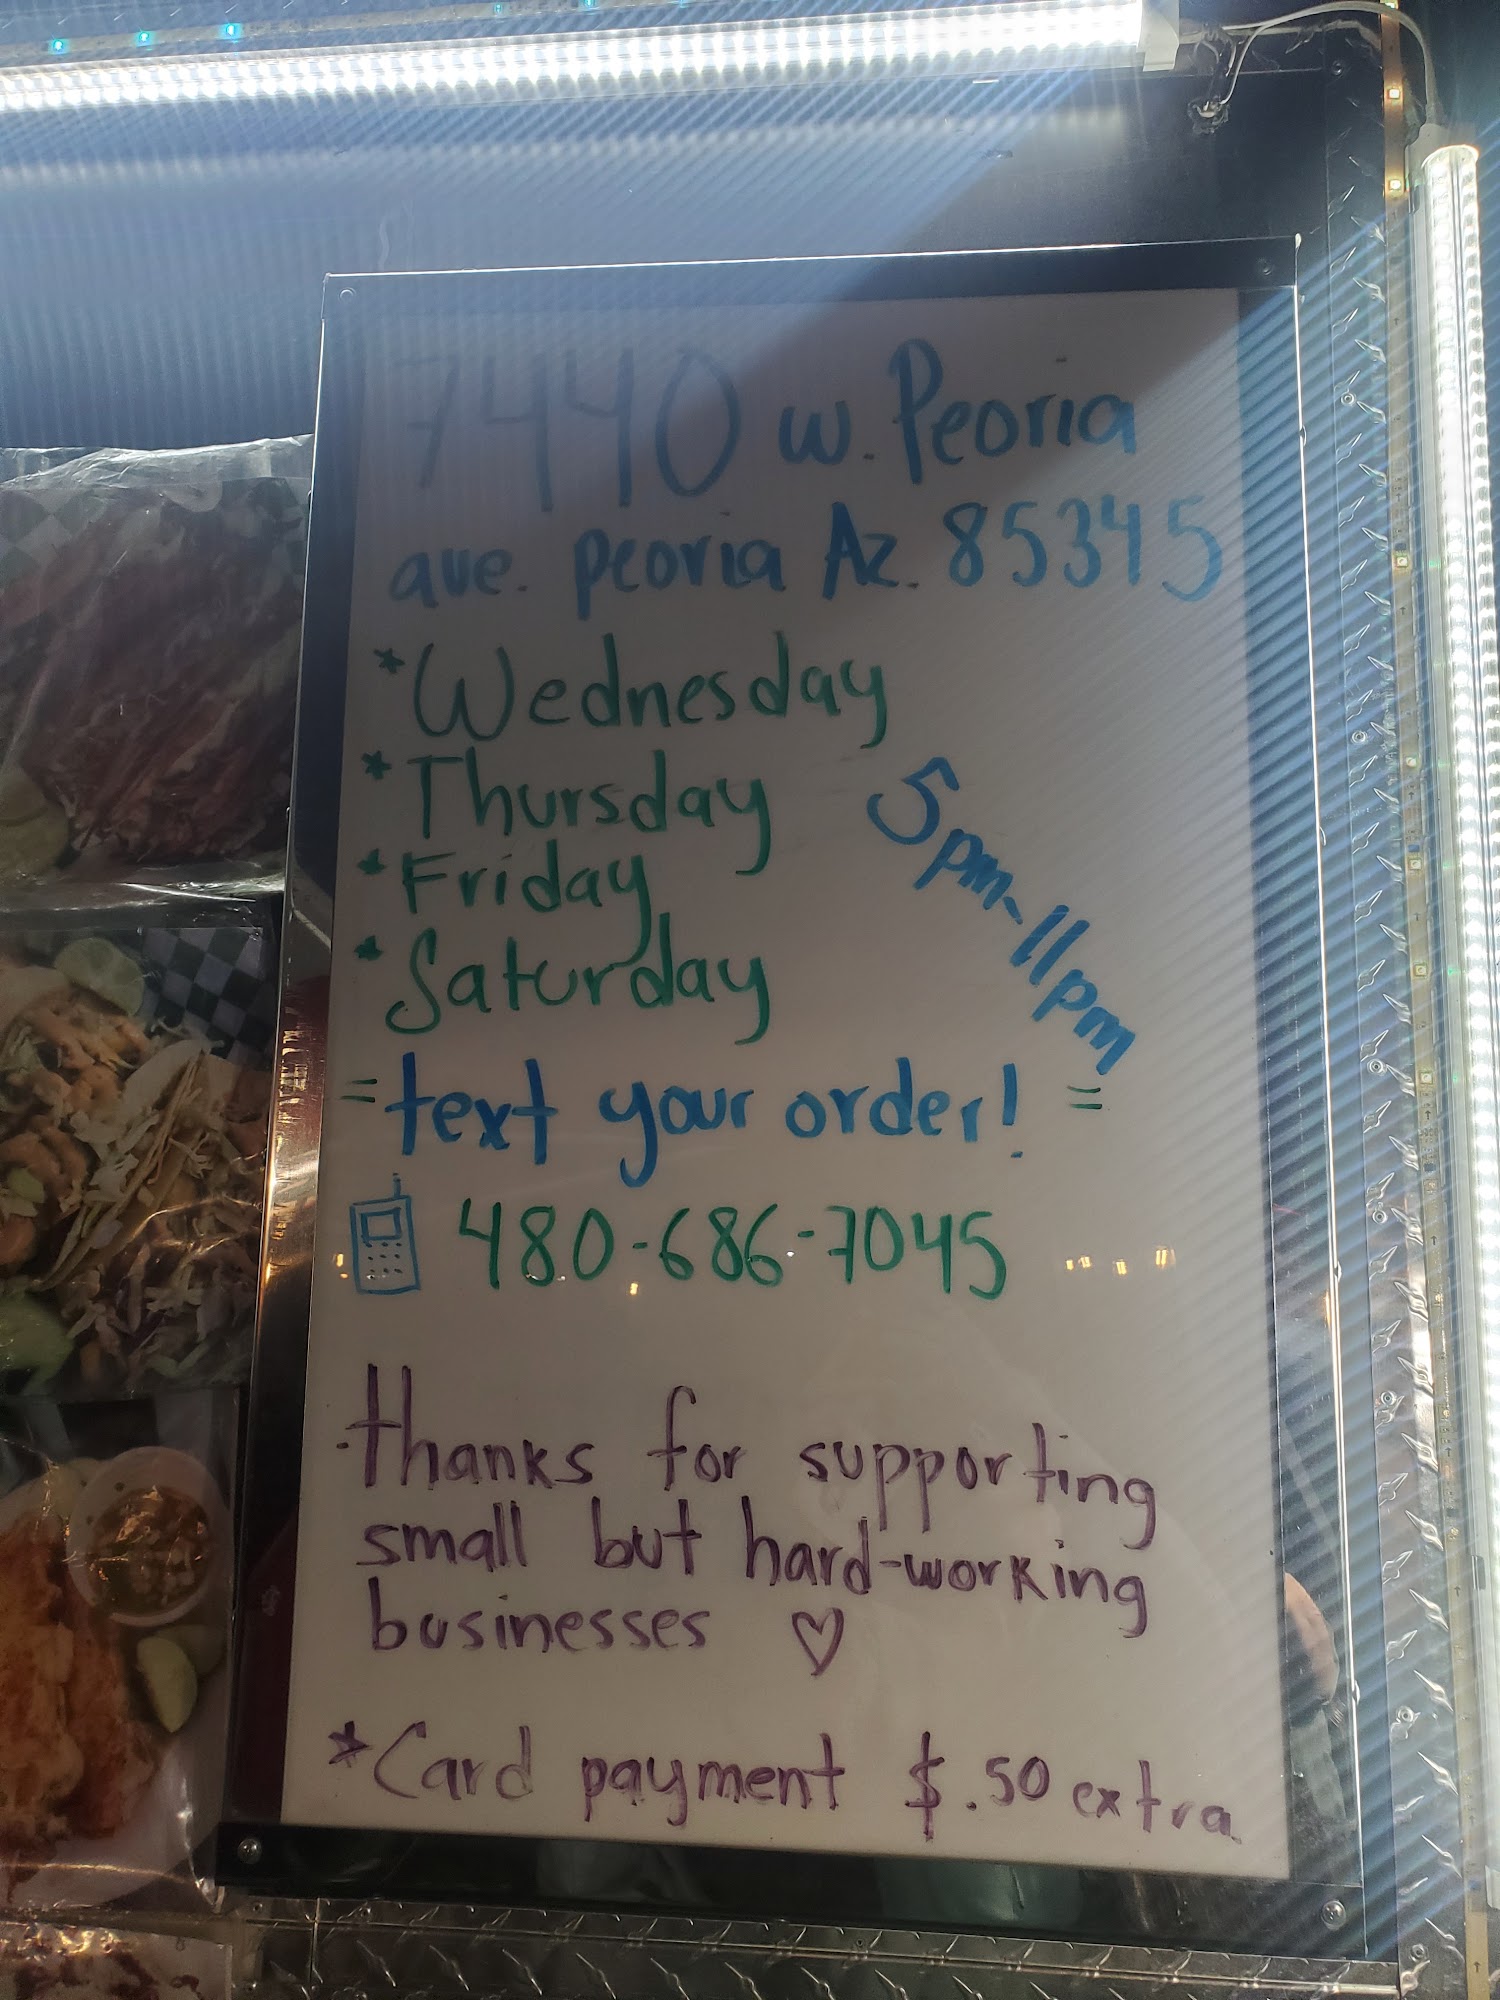 7440 w. Peoria
ave. peoria Az. 85345
*Wednesday
*Thursday
*Friday
*Saturday
5pm-11pm
=text your order! =
480-686-7045
thanks for supporting
small but hard-working
businesses ♡
*Card payment $.50 extra